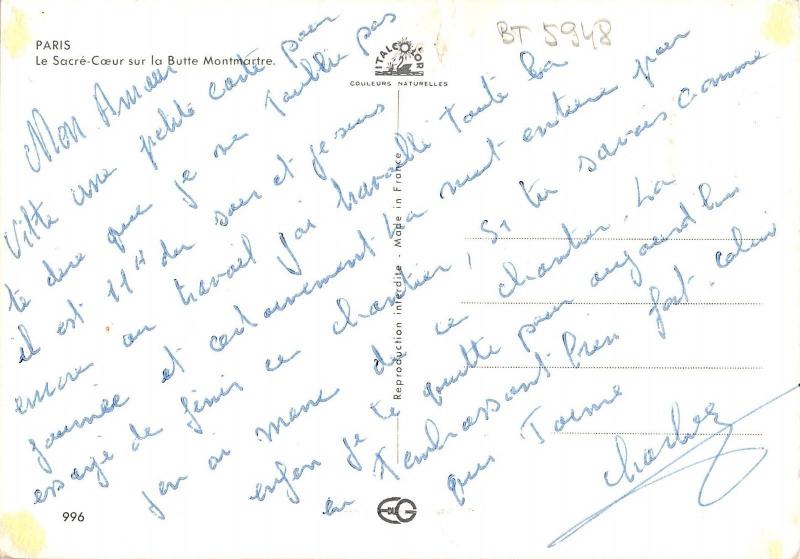 PARIS
Le Sacré-Cœur sur la Butte Montmartre.
ITALCOLOR
COULEURS NATURELLES
BT 5948
Mon Amour
Vitte une petite carte pour
te dire que je ne t'oublie pas
il est 11H du soir et je suis
encore au travail j'ai travaillé toute la
journée et certainement la nuit entière pour
essayé de finir ce chantier, si tu savais comme
j'en ai marre de ce chantier. La
enfin je te quitte pour aujourd'hui
en t'embrassant bien fort. calin
qui t'aime
Charles
Reproduction interdite - Made in France
996